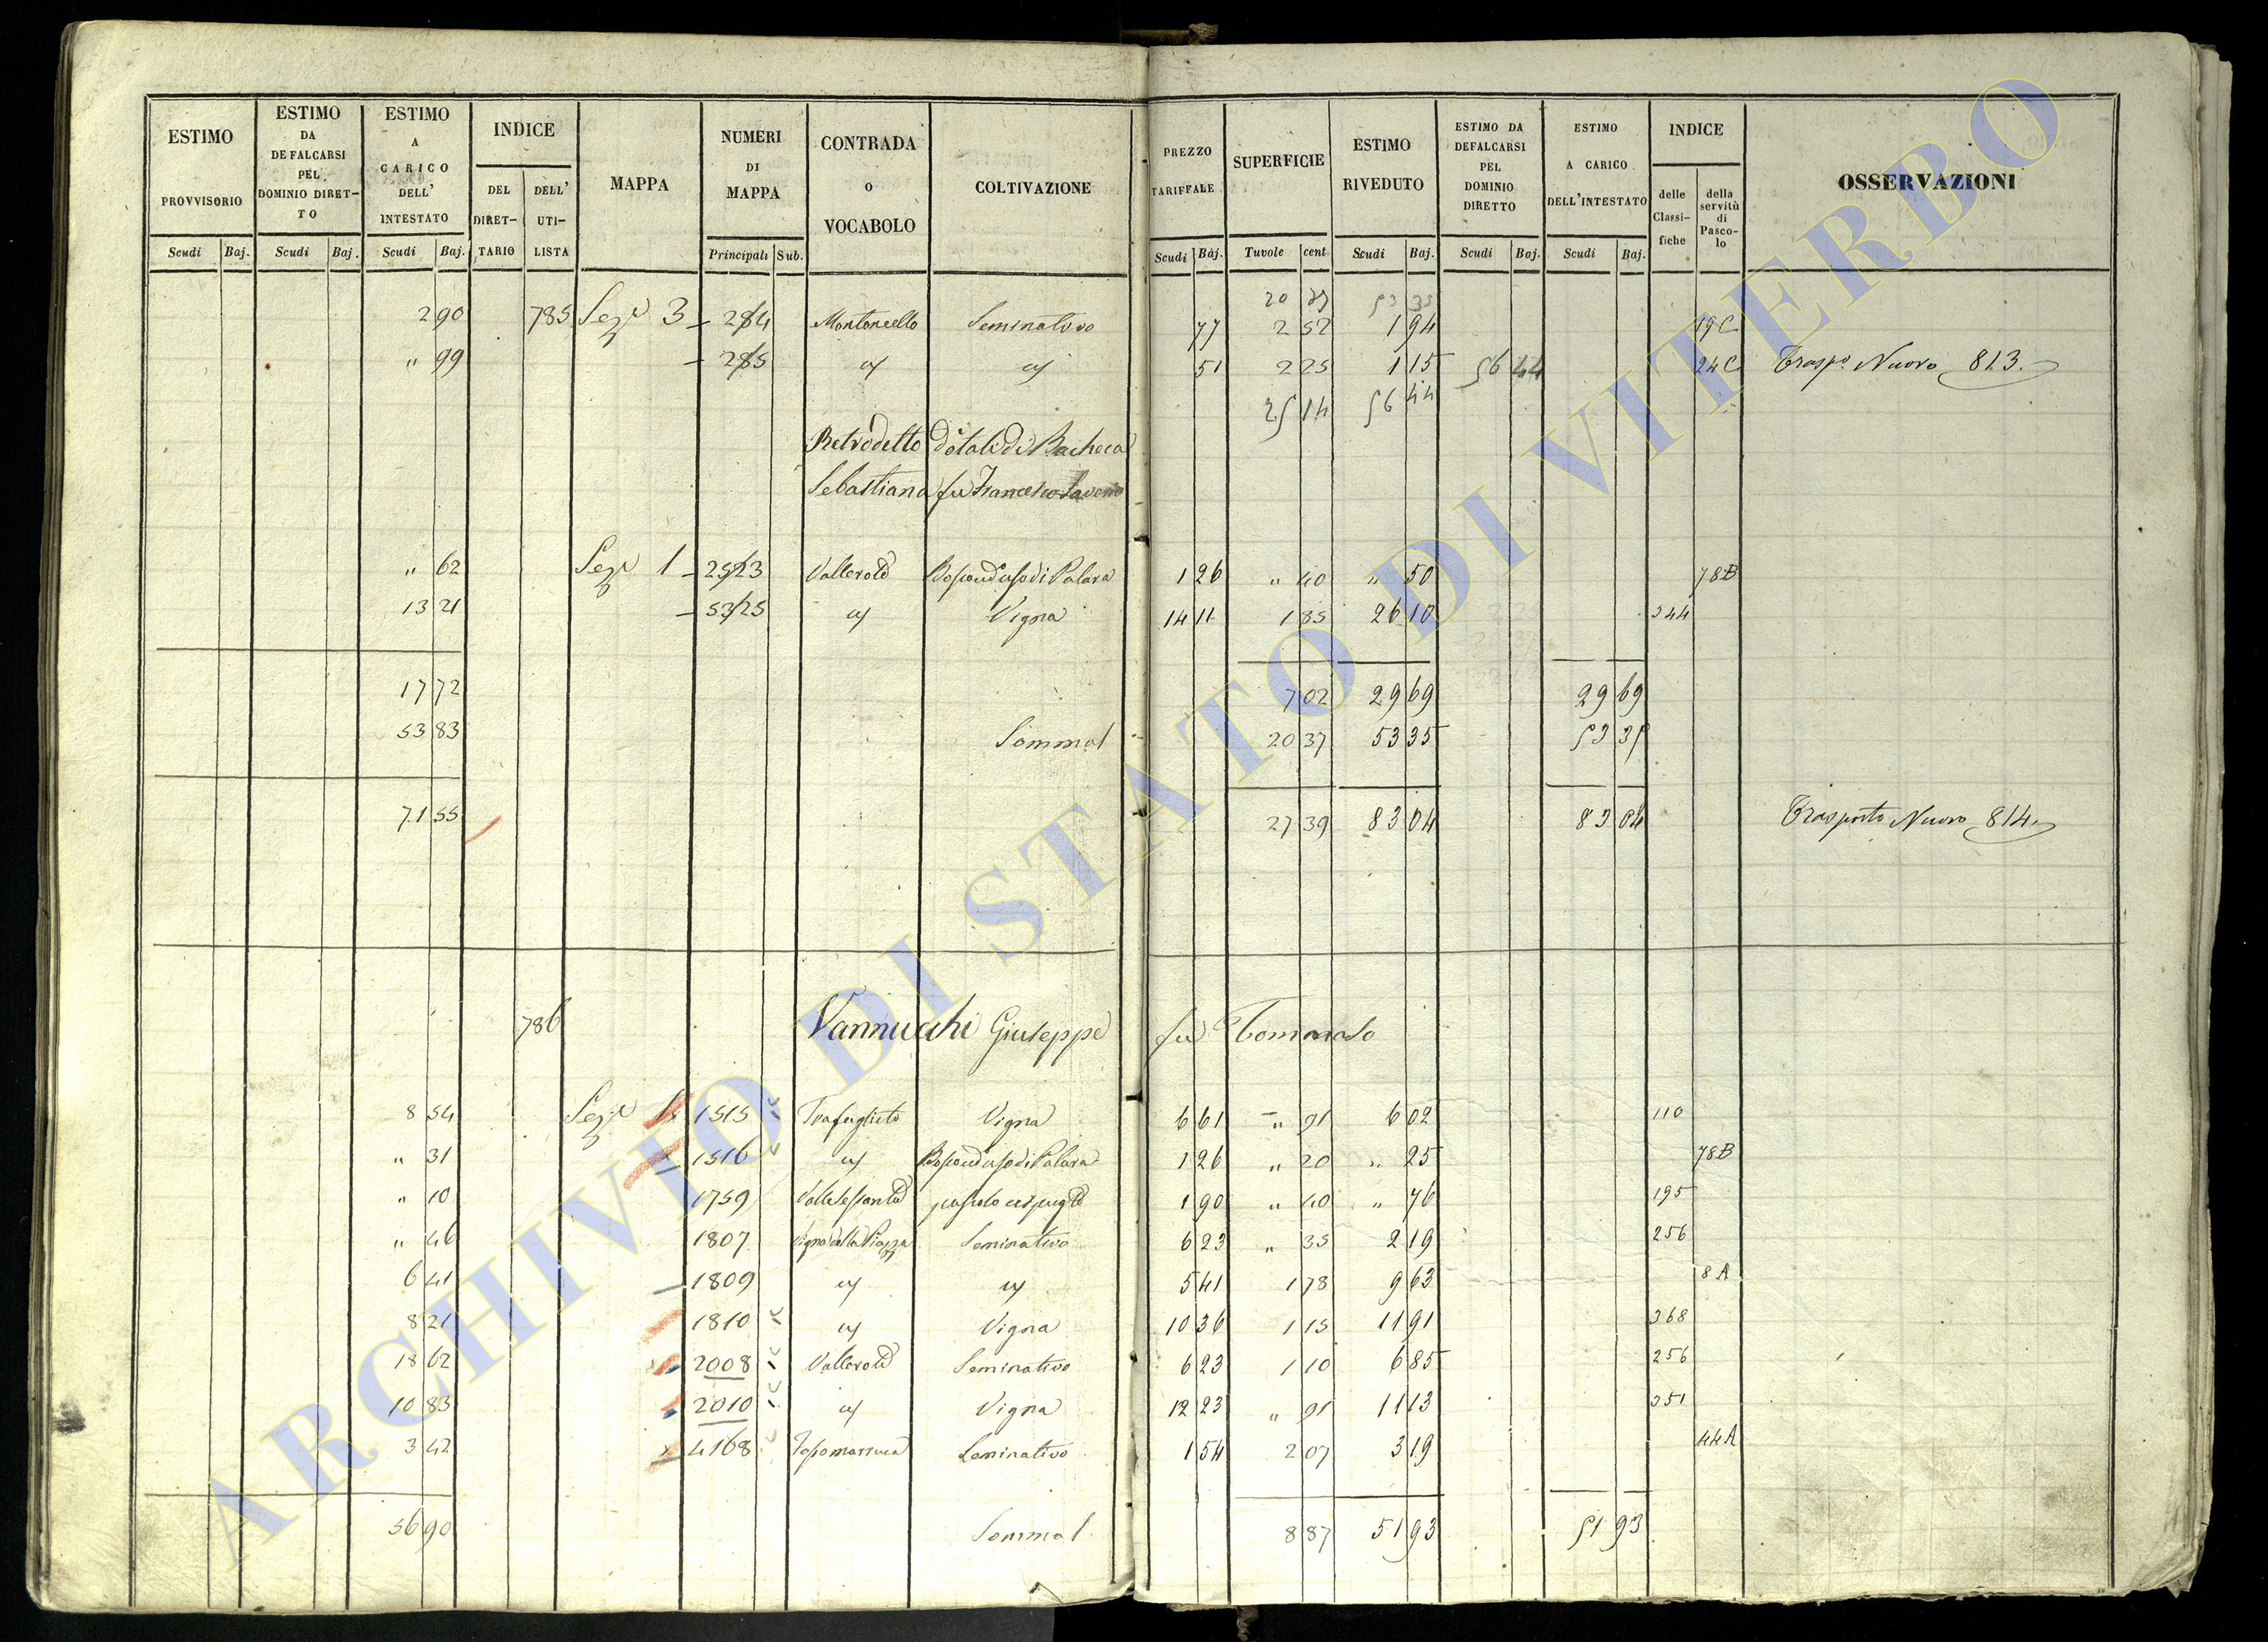 ESTIMO PROVVISORIO
ESTIMO DA DEFALCARSI PEL DOMINIO DIRET-TO
ESTIMO A CARICO DELL' INTESTATO
INDICE
DEL DIRET-TARIO
DELL' UTI-LISTA
MAPPA
NUMERI DI MAPPA
CONTRADA O VOCABOLO
COLTIVAZIONE
PREZZO TARIFFALE
SUPERFICIE
ESTIMO RIVEDUTO
ESTIMO DA DEFALCARSI PEL DOMINIO DIRETTO
ESTIMO A CARICO DELL'INTESTATO
INDICE
delle Classi-fiche
della servitù di Pasco-lo
OSSERVAZIONI
Scudi Baj. Scudi Baj. Scudi Baj. Principali Sub. Scudi Baj. Tavole cent Scudi Baj. Scudi Baj. Scudi Baj.
20 53 35
2 90 785 Sez. 3 284 Montoncello Seminativo 77 2 52 1 94 19C
" 99 285 51 2 25 1 15 56 44 24C Trasp. Nuovo 813.
25 14 56 44
Retrodetto Dotali di Bacheca
Sebastiana fu Francesco Saverio
" 62 Sez. 1 2523 1 26 " 40 " 50 78B
13 21 5325 Vigna 14 11 1 85 26 10 344
17 72 7 02 29 69 29 69
53 83 Somma 20 37 53 35 53 35
71 55 27 39 83 04 83 04 Trasporto Nuovo 814.
786 Vannucchi Giuseppe fu Tommaso
8 54 Sez. 1 1515 Trafuglieto Vigna 6 61 " 91 6 02 110
" 31 1516 1 26 " 20 " 25 78B
" 10 1759 1 90 " 40 " 76 195
" 46 1807 Vigna della Piazza Seminativo 6 23 " 35 2 19 256
6 41 1809 5 41 1 78 9 63 8A
8 21 1810 Vigna 10 36 1 15 11 91 368
18 62 2008 Seminativo 6 23 1 10 6 85 256
10 83 2010 Vigna 12 23 " 91 11 13 351
3 42 4168 Seminativo 1 54 2 07 3 19 44A
56 90 Somma 8 87 51 93 51 93
ARCHIVIO DI STATO DI VITERBO